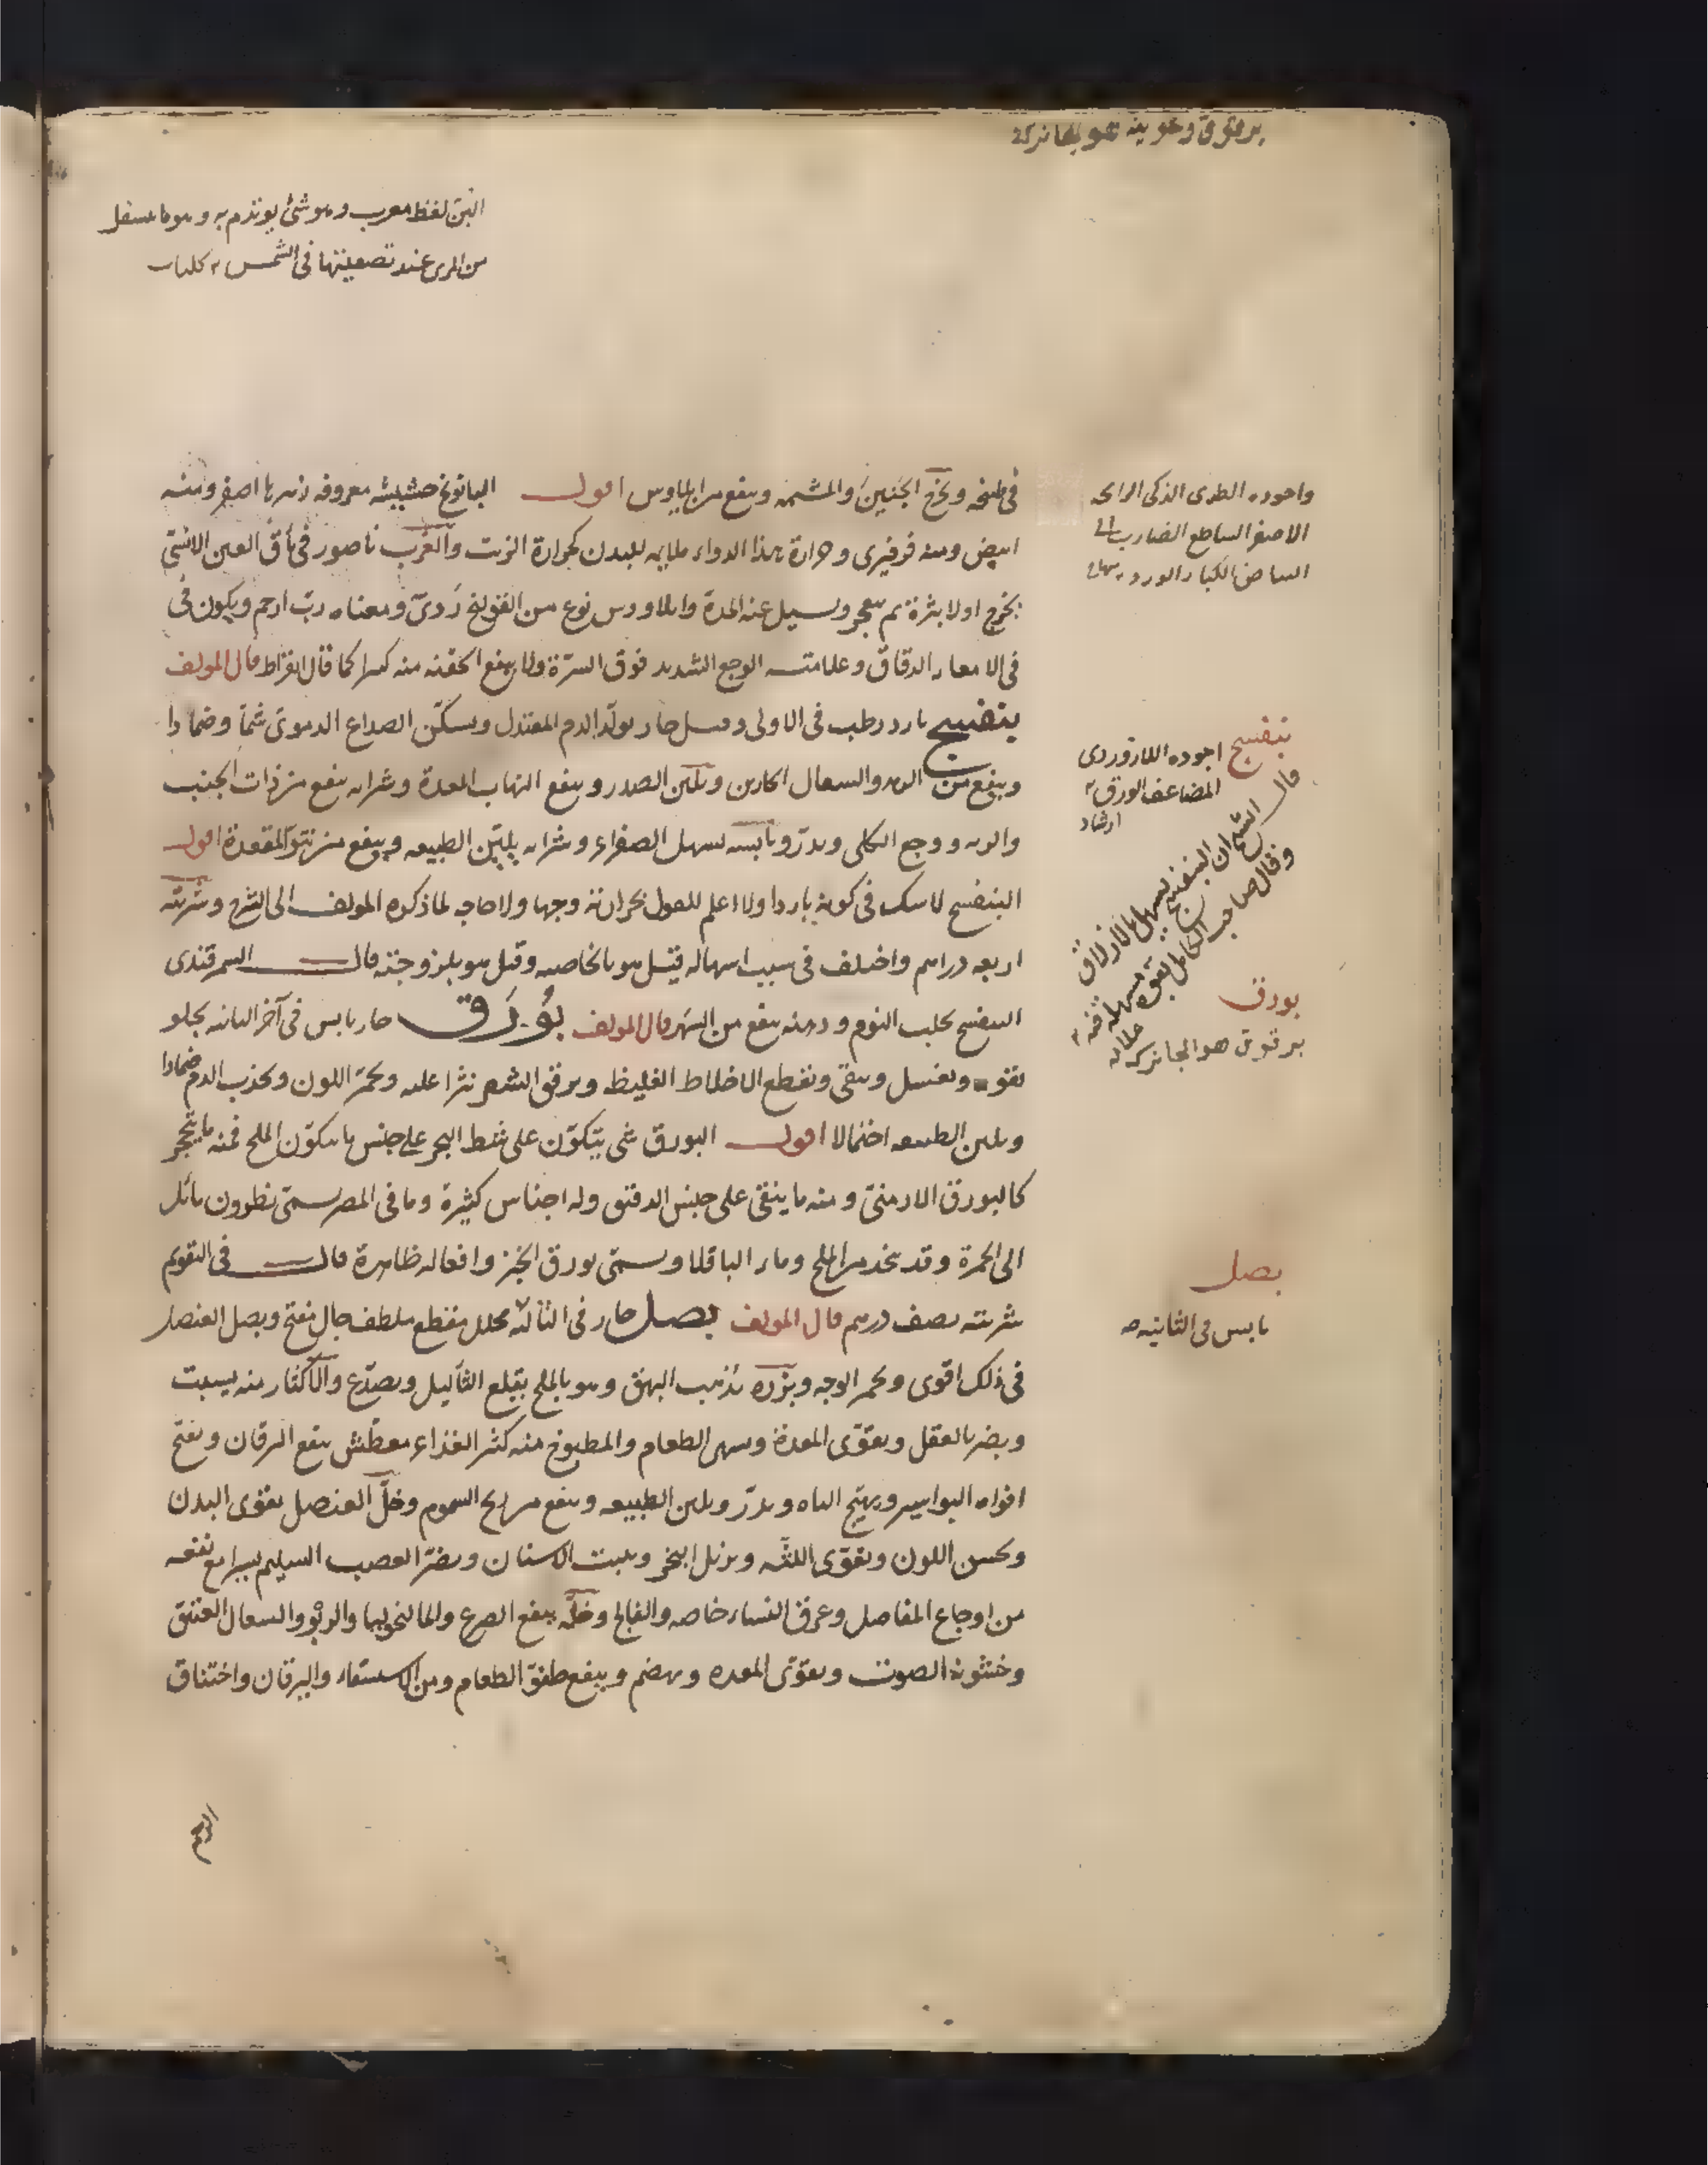 برقوق وعوينه هو
البن لفظ معرب وهو شئ يؤتدم به وهو ما يسفل
من المرى عند تصفيتها فى الشمس
فى طبخه ويخرج الجنين والمشيمة وينفع من ايلاوس اقول البابونج حشيشه معروفه زهرها اصفر ومنه
ابيض ومنه فرفيرى وحرارة هذا الدواء ملايمه للبدن كحرارة الزيت والغرب ناصور فى مأق العين الانسى
يخرج اولا بثرة ثم ينفجر وسيل عنه المدة وايلاوس نوع من القولنج ردئ ومعناه رب ارحم ويكون فى
فى الامعاء الدقاق وعلامته الوجع الشديد فوق السرة ولا ينفع الحقنه منه كثيرا كما قال ابقراط قال المولف
بنفسج بارد رطب فى الاولى وقيل حار يولد الدم المعتدل ويسكن الصداع الدموى شما وضمادا
وينفع من الرمد والسعال الحارين ويلين الصدر وينفع التهاب المعدة وشرابه ينفع من ذات الجنب
والريه ووجع الكلى ويدر ويابسه يسهل الصفراء وشرابه يلين الطبيعه وينفع من نتو المقعدة اقول
البنفسج لا شك فى كونه باردا ولا اعلم للقول بحرارته وجها ولا حاجه لما ذكره المولف الى الشرح وشربته
اربعه دراهم واختلف فى سبب اسهاله قيل هو بالخاصيه وقيل هو بلزوجته قال السمرقندى
البنفسج يجلب النوم ودهنه ينفع من السهر قال المولف بورق حار يابس فى آخر الثانيه يجلو
بقوه ويغسل وينقى ويقطع الاخلاط الغليظ ويرقق الشعر نثرا عليه ويحمر اللون ويجذب الدم ضمادا
ويلين الطبيعه احتمالا اقول البورق شئ يتكون على شط البحر على جنس ما يتكون الملح فمنه ما يتحجر
كالبورق الارمنى ومنه ما ينقى على جنس الدقيق وله اجناس كثيرة وما فى المصر يسمى نطرون مائل
الى الحمرة وقد يتخذ من الملح وماء الباقلا ويسمى بورق الخبز وافعاله ظاهرة قال فى التقويم
شربته نصف درهم قال المولف بصل حار فى الثالثه محلل مقطع ملطف جال مفتح وبصل العنصل
فى ذلك اقوى ويحمر الوجه وبزره يذهب البهق وهو بالملح يقلع الثآليل ويصدع والاكثار منه يسبت
ويضر بالعقل ويقوى المعدة ويشهى الطعام والمطبوخ منه كثير الغذاء معطش ينفع اليرقان ويفتح
افواه البواسير ويهيج الباه ويدر ويلين الطبيعه وينفع من ريح السموم وخل العنصل يقوى البدن
ويحسن اللون ويقوى اللثه ويزيل البخر ويثبت الاسنان ويضر العصب السليم يسيرا مع نفعه
من اوجاع المفاصل وعرق النساء خاصه والفالج وخله ينفع الصرع والمالنخوليا والربو والسعال العتيق
وخشونة الصوت ويقوى المعده ويهضم وينفع طفو الطعام ومن الاستسقاء واليرقان واختناق
واجوده الطرى الذكى الرائحه
الاصفر الساطع الضارب الى
البياض الكبار الورد
بنفسج اجوده اللازوردى
المضاعف الورق
ارشاد
قال الشيخ ان البنفسج يسهل بالازلاق
وقال صاحب الكامل بقوه مسهله فيه
بورق
برقوق هو الجانرك
بصل
يابس فى الثانيه